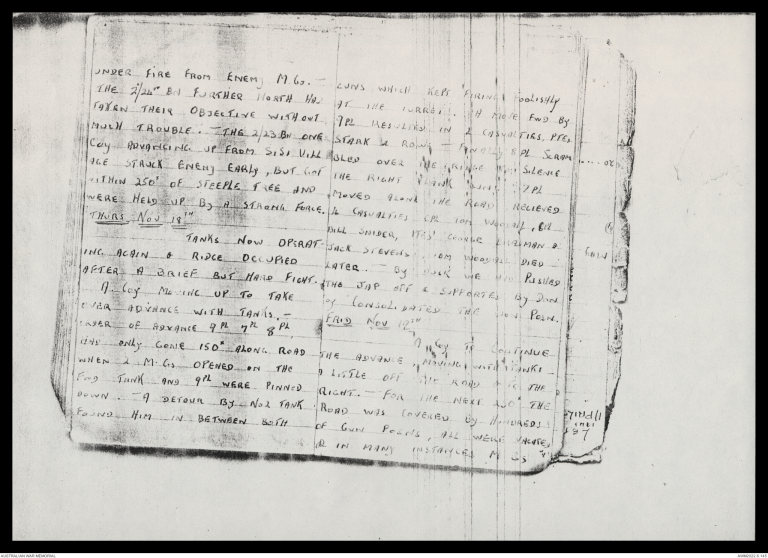 UNDER FIRE FROM ENEMY M.Gs. —
THE 2/24TH BN FURTHER NORTH HAD
TAKEN THEIR OBJECTIVE WITHOUT
MUCH TROUBLE. — THE 2/23 BN ONE
COY ADVANCING UP FROM SISI VILL
AGE STRUCK ENEMY EARLY, BUT GOT
WITHIN 250X OF STEEPLE TREE AND
WERE HELD UP BY A STRONG FORCE.
THURS NOV 18TH
TANKS NOW OPERAT
ING AGAIN & RIDGE OCCUPIED
AFTER A BRIEF BUT HARD FIGHT.
A. COY MOVING UP TO TAKE
OVER ADVANCE WITH TANKS. —
ORDER OF ADVANCE 9 PL 7 PL 8 PL
HAD ONLY GONE 150X ALONG ROAD
WHEN 2 M.Gs OPENED ON THE
FWD TANK AND 9 PL WERE PINNED
DOWN. — A DETOUR BY No2 TANK
FOUND HIM IN BETWEEN BOTH
GUNS WHICH KEPT FIRING FOOLISHLY
AT THE TURRET. MOVE FWD BY
7 PL RESULTED IN 2 CASUALTIES, PTES
STARK & ROW. — FINALLY 8 PL SCRAM
BLED OVER THE RIDGE TO SILENCE
THE RIGHT FLANK GUN. 7 PL
MOVED ALONG THE ROAD RELIEVED
4 CASUALTIES CPL TOM WOODALL, CPL
BILL SNIDER, PTES GEORGE &
JACK STEVENS. TOM WOODALL DIED
LATER. — BY DUSK WE HAD PUSHED
THE JAP OFF & SUPPORTED BY DON
COY CONSOLIDATED THE POSN.
FRID NOV 19TH
A COY TO CONTINUE
THE ADVANCE, MOVING WITH TANKS
A LITTLE OFF THE ROAD TO THE
RIGHT. — FOR THE NEXT 250X THE
ROAD WAS COVERED BY HUNDREDS
OF GUN POSNS, ALL WERE VACATED
& IN MANY INSTANCES M Gs
AUSTRALIAN WAR MEMORIAL